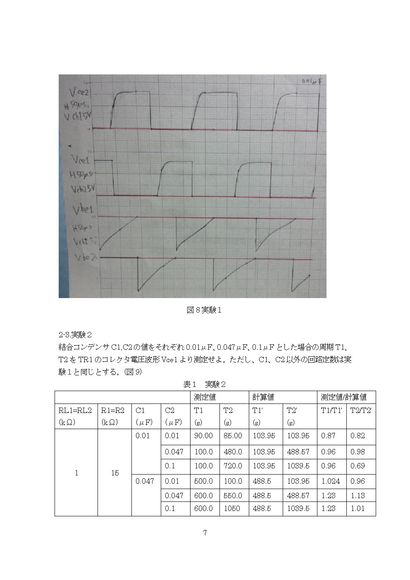 0.01μF
Vce2
H 50μs
V ch1 5V
Vce1
H 50μs
Vch2 5V
Vbe1
H 50μs
Vbe2
図 8 実験 1
2-8.実験 2
結合コンデンサ C1,C2 の値をそれぞれ 0.01μF、0.047μF、0.1μF とした場合の周期 T1、
T2 を TR1 のコレクタ電圧波形 Vce1 より測定せよ。ただし、C1、C2 以外の回路定数は実
験 1 と同じとする。(図 9)
表 1 実験 2
測定値 計算値 測定値/計算値
RL1=RL2 R1=R2 C1 C2 T1 T2 T1' T2' T1/T1' T2/T2'
(kΩ) (kΩ) (μF) (μF) (g) (g) (g) (g)
0.01 0.01 90.00 85.00 103.95 103.95 0.87 0.82
0.047 100.0 480.0 103.95 488.57 0.96 0.98
0.1 100.0 720.0 103.95 1039.5 0.96 0.69
1 15
0.047 0.01 500.0 100.0 488.5 103.95 1.024 0.96
0.047 600.0 550.0 488.5 488.57 1.23 1.13
0.1 600.0 1050 488.5 1039.5 1.23 1.01
7